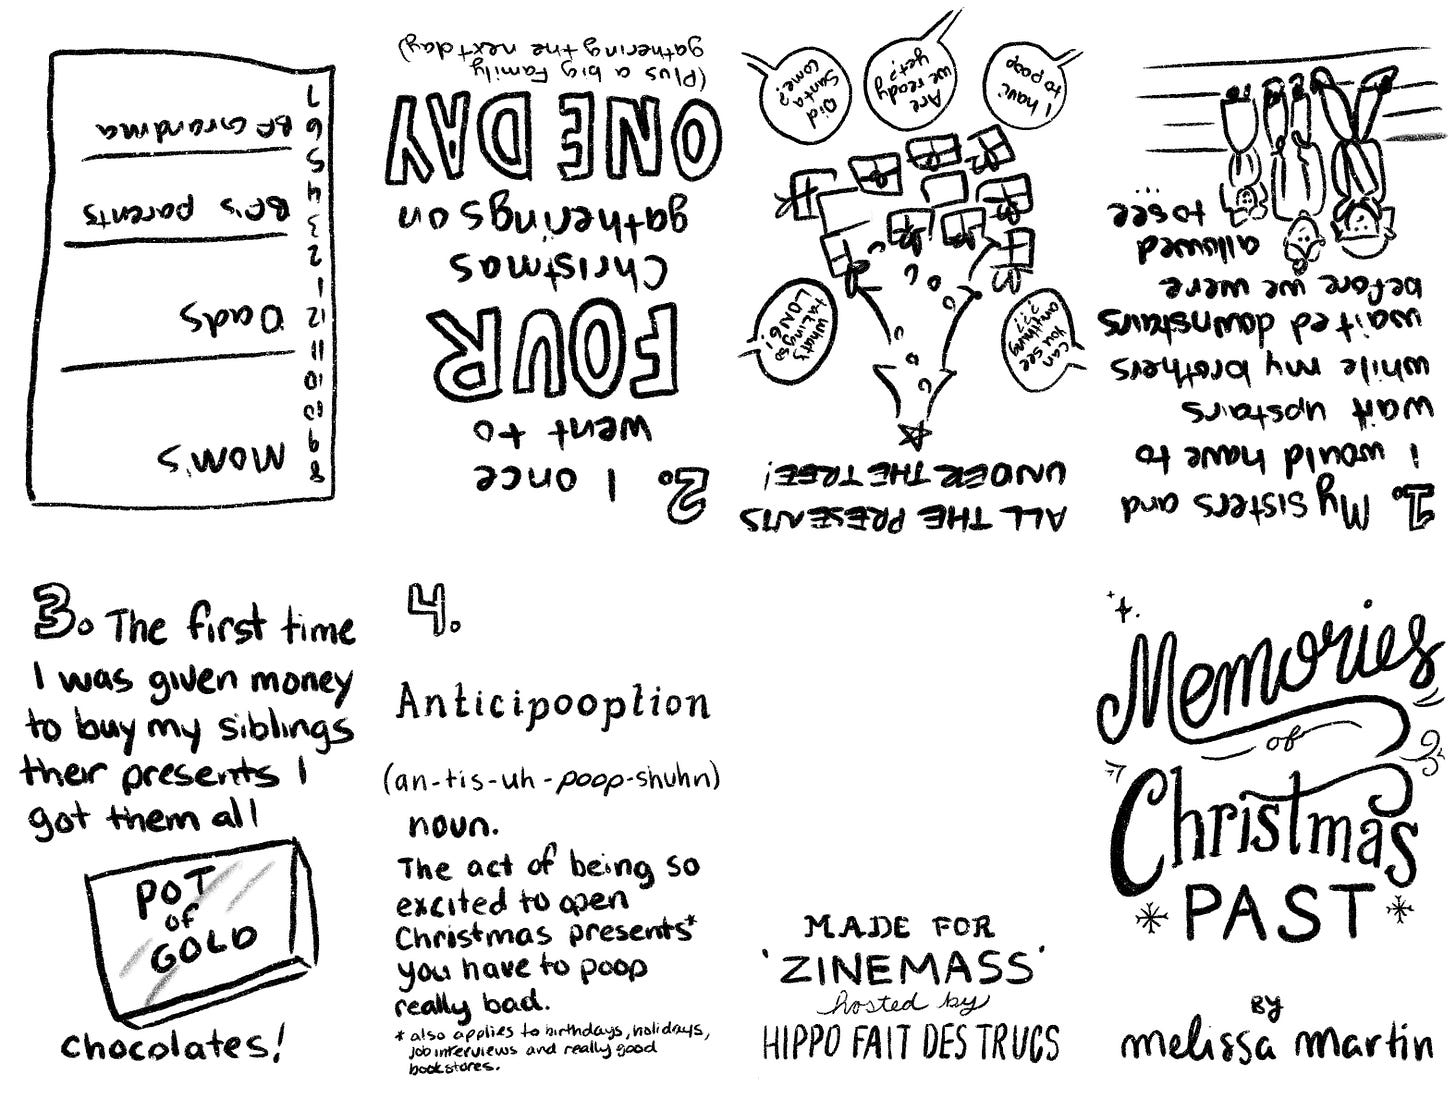 Memories
of
Christmas
PAST
BY
melissa martin
1. My sisters and
I would have to
wait upstairs
while my brothers
waited downstairs
before we were
allowed
to see...
ALL THE PRESENTS
UNDER THE TREE!
Can
you see
anything
???
What's
taking so
LONG!
I have
to poop
Are
we ready
yet??
Did
Santa
come?
2. I once
went to
FOUR
Christmas
gatherings on
ONE DAY
(Plus a big family
gathering the next day)
8
Mom's
9
10
11
12
Dads
1
2
3
BF's parents
4
5
6
BF Grandma
7
3. The first time
I was given money
to buy my siblings
their presents I
got them all
POT
of
GOLD
chocolates!
4.
Anticipooption
(an-tis-uh-poop-shuhn)
noun.
The act of being so
excited to open
Christmas presents*
you have to poop
really bad.
* also applies to birthdays, holidays,
job interviews and really good
bookstores.
MADE FOR
'ZINEMASS'
hosted by
HIPPO FAIT DES TRUCS